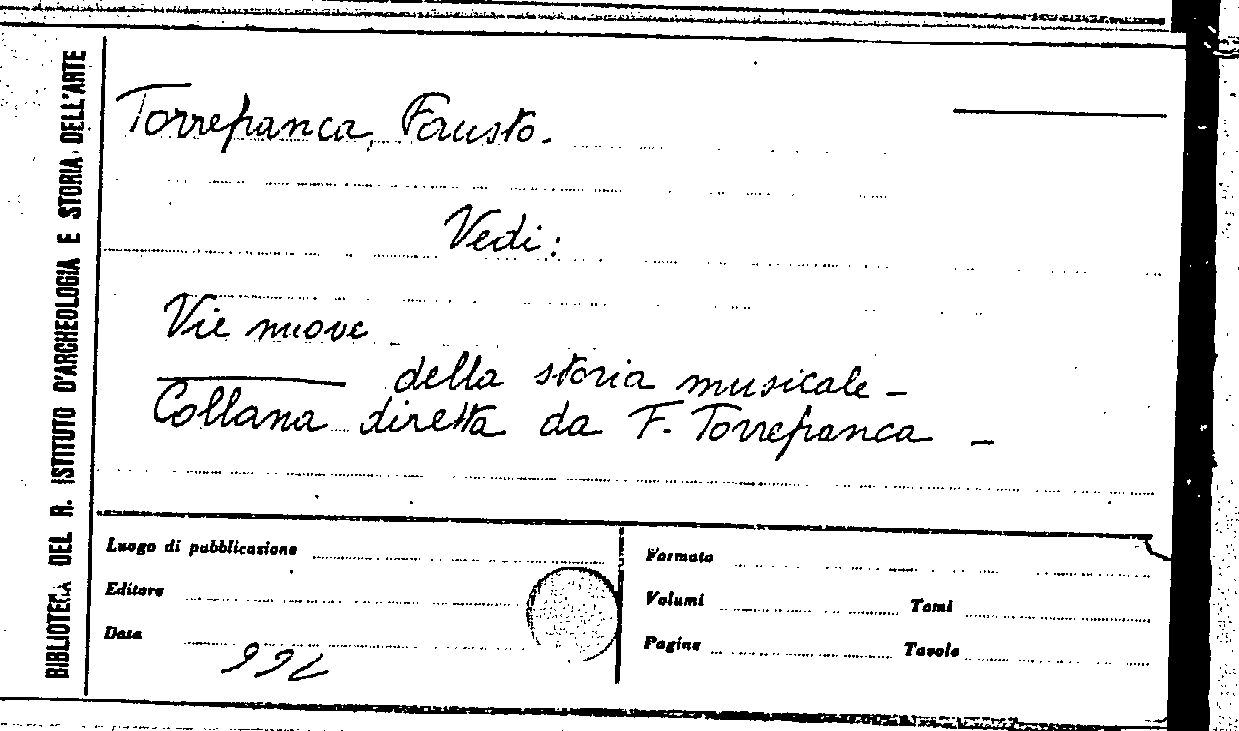 BIBLIOTECA DEL R. ISTITUTO D'ARCHEOLOGIA E STORIA DELL'ARTE
Torrefranca, Fausto.
Vedi:
Vie nuove
della storia musicale -
Collana diretta da F. Torrefranca -
Luogo di pubblicazione
Editore
Data
Formato
Volumi Tomi
Pagine Tavole